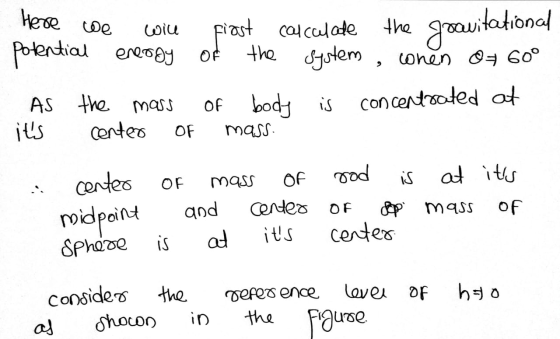 Here we will first calculate the gravitational
potential energy of the system, when θ = 60°
As the mass of body is concentrated at
it's center of mass.
∴ center of mass of rod is at it's
midpoint and center of mass of
sphere is at it's center
consider the reference level of h = 0
as shown in the figure